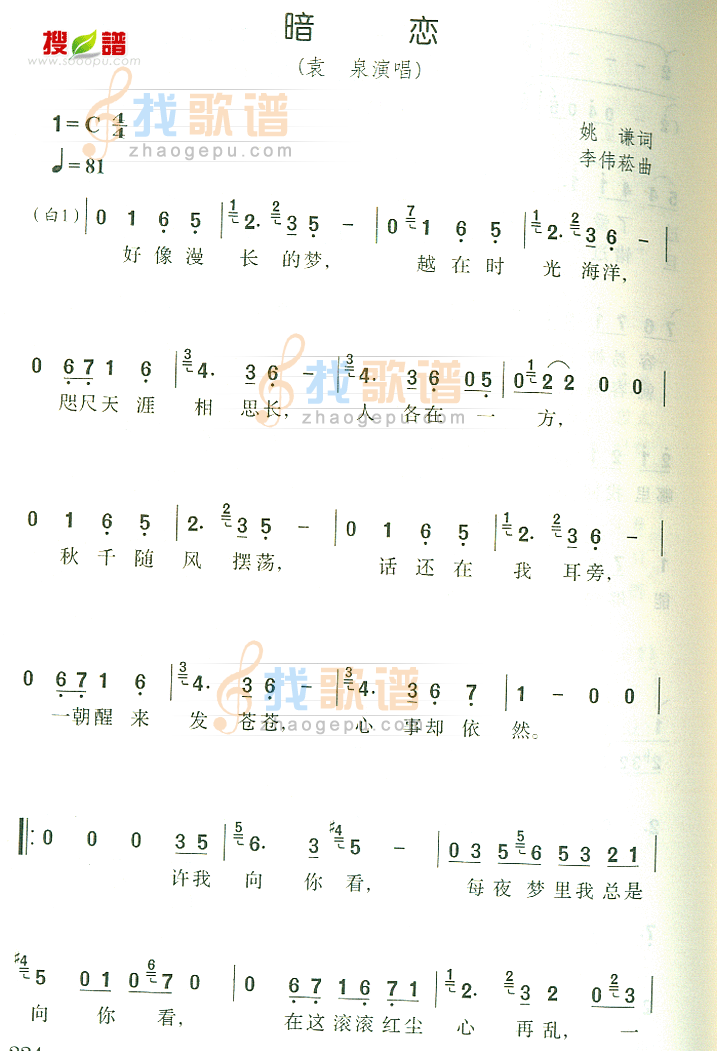 暗 恋
搜 谱
www.sooopu.com
(袁 泉演唱)
找歌谱
zhaogepu.com
1=C 4/4
姚 谦词
李伟菘曲
♩=81
(白1) | 0 1 6 5 | 1 2. 2 3 5 – | 0 7 1 6 5 | 1 2. 2 3 6 – |
好像漫 长 的梦, 越在时 光 海洋,
0 6 7 1 6 | 3 4. 3 6 – | 3 4. 3 6 0 5 | 0 1 2 2 0 0 |
咫尺天 涯 相 思长, 人 各在 一 方,
找歌谱
zhaogepu.com
0 1 6 5 | 2. 2 3 5 – | 0 1 6 5 | 1 2. 2 3 6 – |
秋千随 风 摆荡, 话还在 我 耳旁,
0 6 7 1 6 | 3 4. 3 6 – | 3 4. 3 6 7 | 1 – 0 0 |
一朝醒 来 发 苍苍, 心 事却 依 然。
找歌谱
zhaogepu.com
‖: 0 0 0 3 5 | 5 6. 3 #4 5 – | 0 3 5 5 6 5 3 2 1 |
许我 向 你 看, 每夜梦里我总是
#4 5 0 1 0 6 7 0 | 0 6 7 1 6 7 1 | 1 2. 2 3 2 0 3 |
向 你 看, 在这滚滚红尘 心 再乱, 一